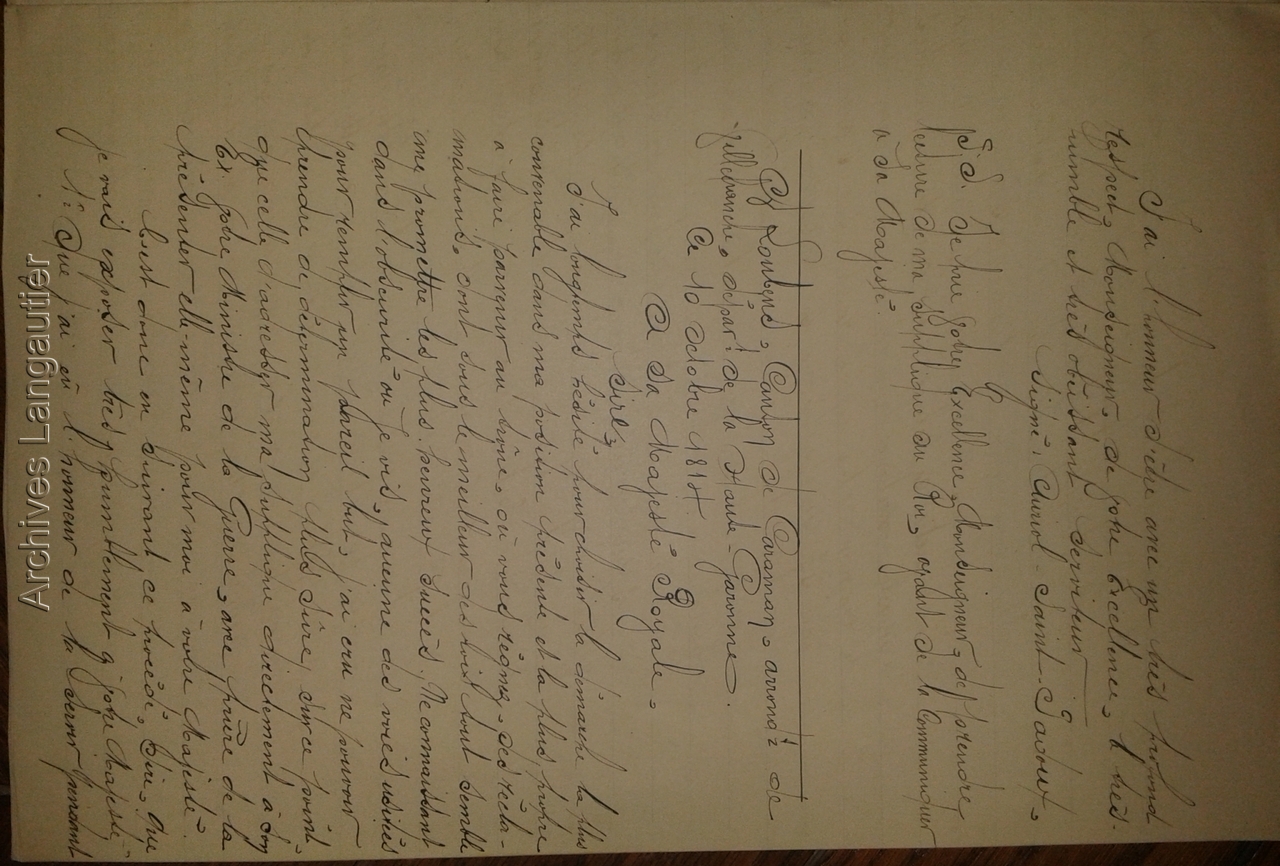 J'ai l'honneur d'être avec un très profond
respect, Monseigneur, de votre Excellence, le très-
humble et très obéissant Serviteur
Signé: Auriol-Saint-Sadoux.
P.S. Je prie Votre Excellence, Monseigneur, de prendre
lecture de ma supplique au Roi, avant de la Communiquer
à Sa Majesté.
De Loubens, Canton de Caraman, arrondt de
Villefranche, départt de la Haute-Garonne.
Ce 10 octobre 1814
A Sa Majesté Royale.
Sire,
J'ai longtemps hésité pour choisir la démarche la plus
convenable dans ma position présente et la plus propre
à faire parvenir au trône, où vous régnez, des récla-
mations, dont sous le meilleur des rois tout semble
me promettre les plus heureux succès. Ne connaissant
dans l'obscurité où je vis, aucune des voies usitées
pour remplir un pareil but, j'ai cru ne pouvoir
prendre de détermination plus sûre, sur ce point,
que celle d'adresser ma supplique directement à Son
Ex. Votre Ministre de la Guerre, avec prière de la
présenter elle-même pour moi à votre Majesté.
C'est donc en suivant ce procédé, Sire, que
je vais exposer très humblement à votre Majesté,
1º Que j'ai eu l'honneur de la servir pendant
Archives Langautier